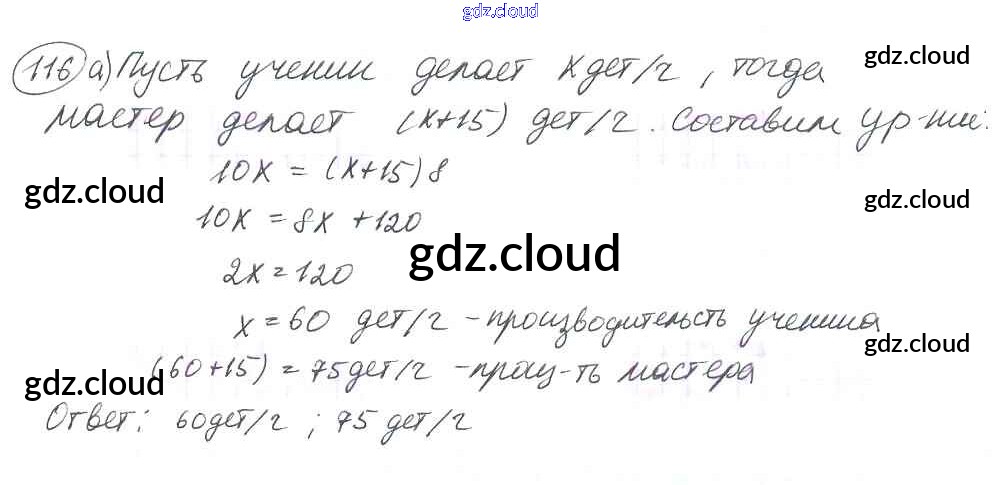 gdz.cloud
116 а) Пусть ученик делает x дет/ч, тогда
gdz.cloud
мастер делает (x+15) дет/ч. Составим ур-ние:
10x = (x+15)8
gdz.cloud
gdz.cloud
10x = 8x + 120
gdz.cloud
2x = 120
x = 60 дет/ч - производительсть ученика
gdz.cloud
(60+15) = 75 дет/ч - произ-ть мастера
gdz.cloud
Ответ: 60 дет/ч ; 75 дет/ч